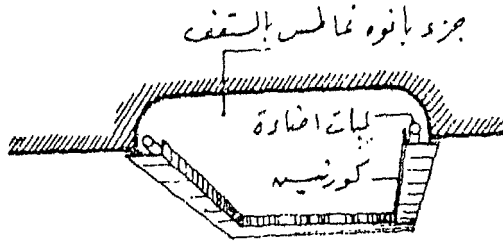 جزء بانوه غاطس بالسقف
لمبات اضاءة
كورنيس